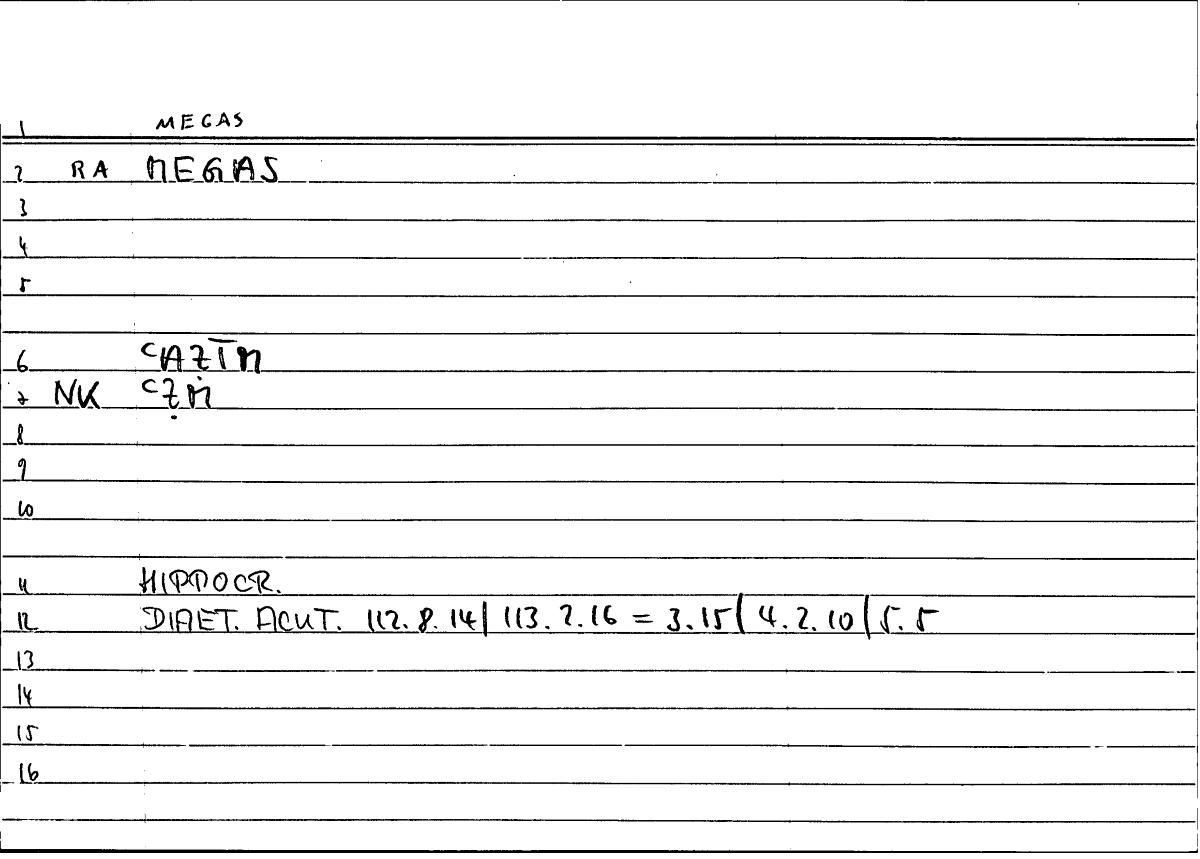 1 MEGAS
2 RA MEGAS
3
4
5
6 ᶜAZĪM
7 NK ᶜẒṀ
8
9
10
11 HIPPOCR.
12 DIAET. ACUT. 112.8.14| 113.2.16 = 3.15| 4.2.10| 5.5
13
14
15
16